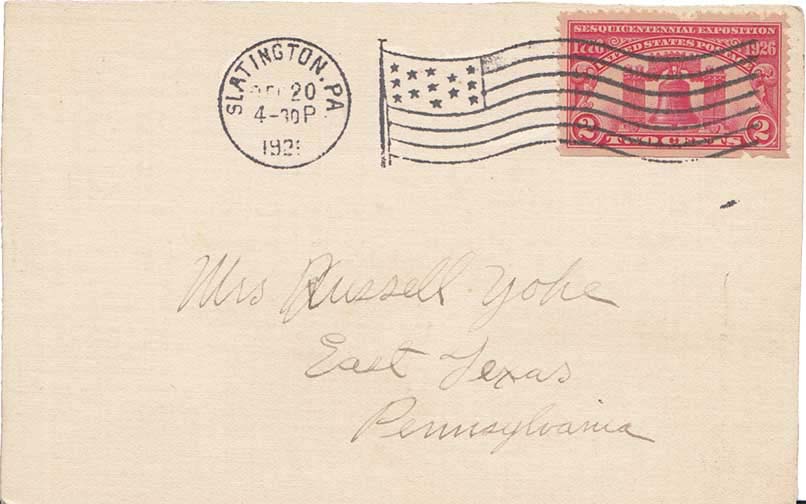 SESQUICENTENNIAL EXPOSITION
1776 UNITED STATES POSTAGE 1926
2 TWO CENTS 2
SLATINGTON, PA
20
4-30 P
Mrs Russell Yohe
East Texas
Pennsylvania